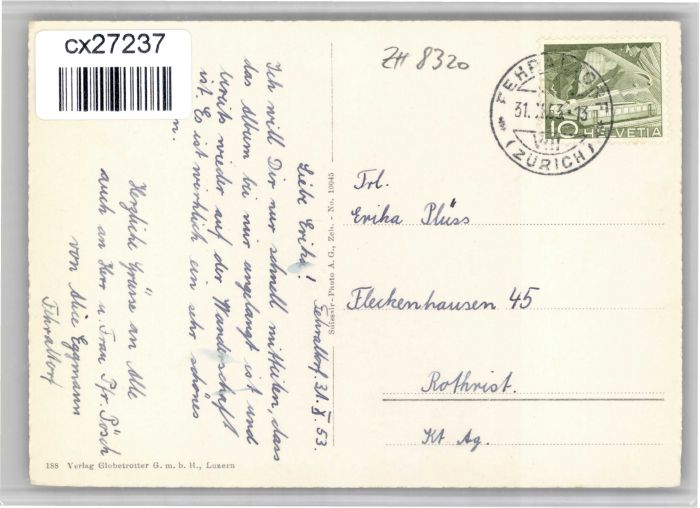 cx27237
ZH 8320
FEHRALTORF
31.X.53-13
VIII
(ZÜRICH)
10 HELVETIA
Frl.
Erika Plüss
Fleckenhausen 45
Rothrist.
Kt Ag.
Fehraltorf. 31. X 53.
Liebe Erika!
Ich will Dir nur schnell mitteilen, dass
das Album bei mir angelangt ist und
bereits wieder auf der Wanderschaft
ist. Es ist wirklich ein sehr schönes
n.
Herzliche Grüsse an Alle
auch an Herr u. Frau Pfr. Pösch
von Alice Eggmann
Fehraltorf
Suissair-Photo A.G., Zch. - No. 10045
188 Verlag Globetrotter G. m. b. H., Luzern